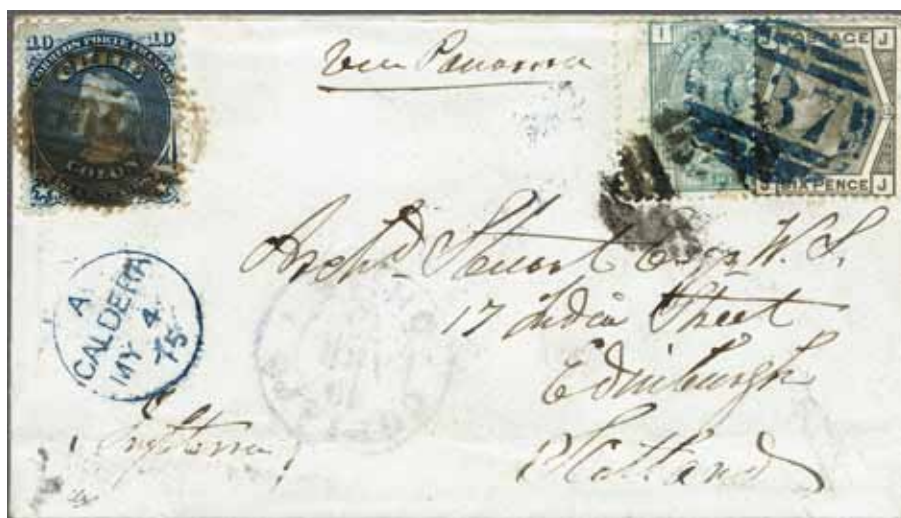 10 10
CORREOS PORTE FRANCO
CHILE
COLON
via Panama
I
J POSTAGE J
37
J SIX PENCE J
Archd. Stuart Esqr W.S.
17 India Street
Edinburgh
Scotland
A
CALDERA
MY 4
75
Inglaterra